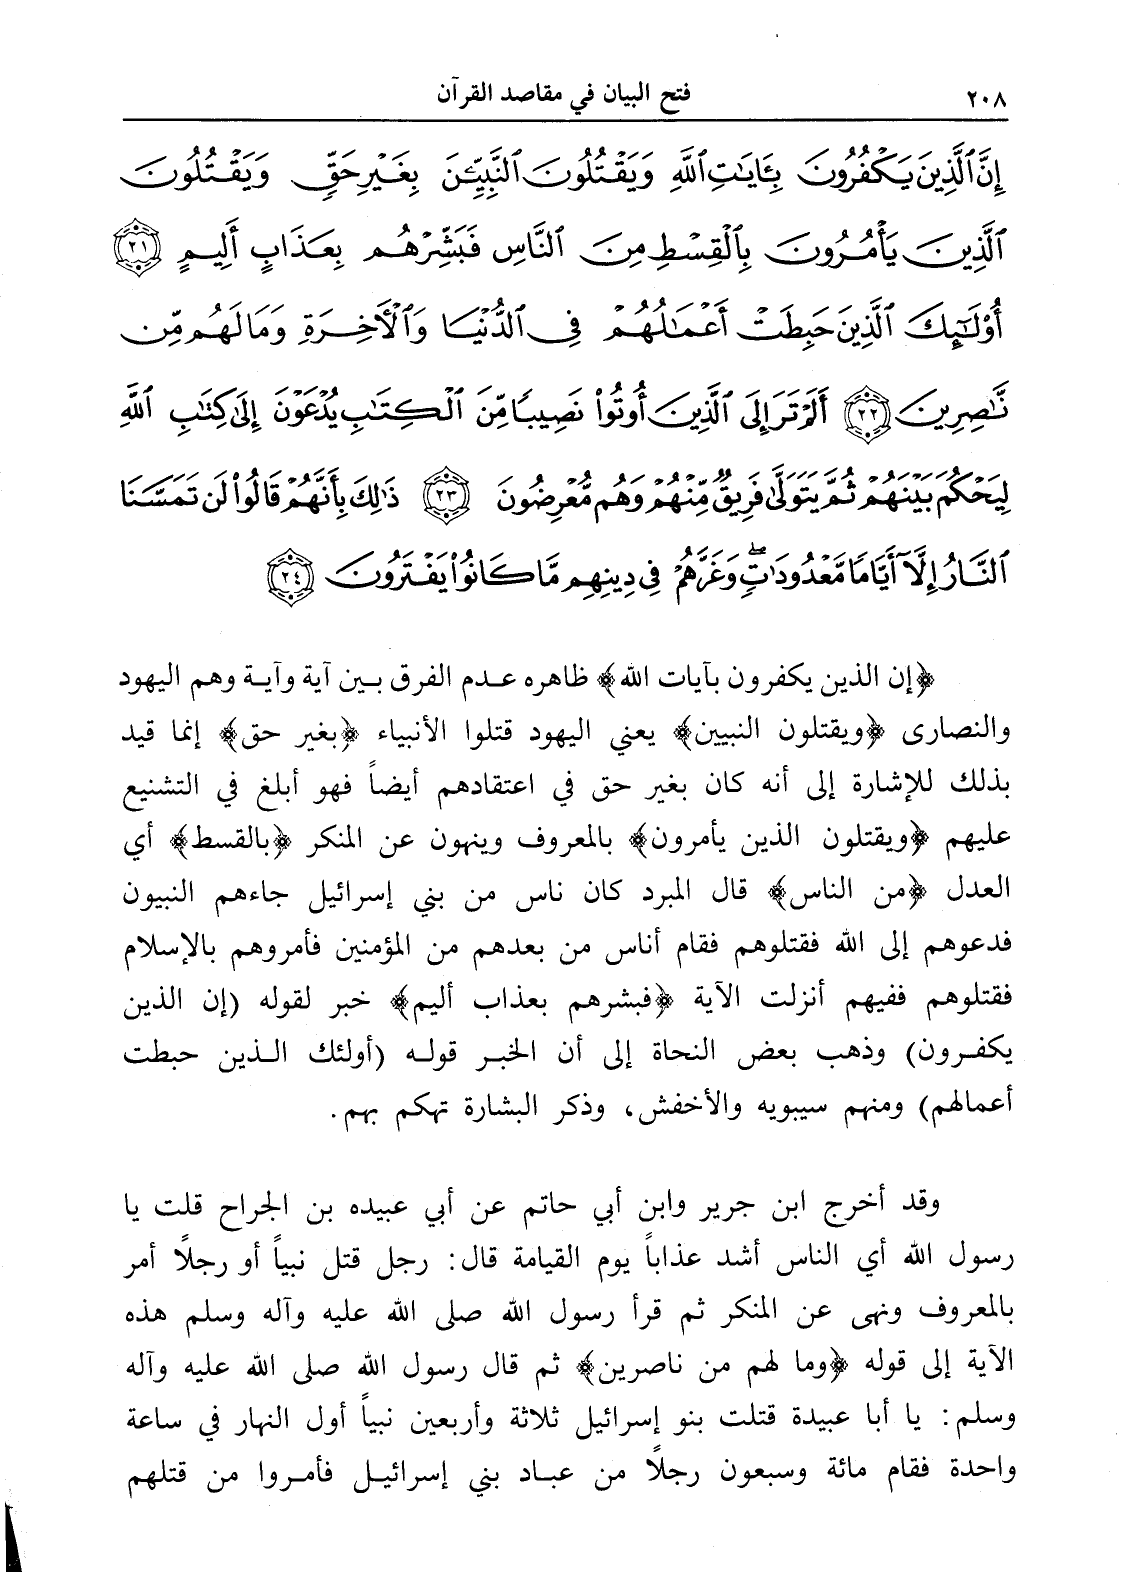 ٢٠٨ فتح البيان في مقاصد القرآن
إِنَّ ٱلَّذِينَ يَكۡفُرُونَ بِـَٔايَٰتِ ٱللَّهِ وَيَقۡتُلُونَ ٱلنَّبِيِّـۧنَ بِغَيۡرِ حَقّٖ وَيَقۡتُلُونَ
ٱلَّذِينَ يَأۡمُرُونَ بِٱلۡقِسۡطِ مِنَ ٱلنَّاسِ فَبَشِّرۡهُم بِعَذَابٍ أَلِيمٍ ٢١
أُوْلَٰٓئِكَ ٱلَّذِينَ حَبِطَتۡ أَعۡمَٰلُهُمۡ فِي ٱلدُّنۡيَا وَٱلۡأٓخِرَةِ وَمَا لَهُم مِّن
نَّٰصِرِينَ ٢٢ أَلَمۡ تَرَ إِلَى ٱلَّذِينَ أُوتُواْ نَصِيبٗا مِّنَ ٱلۡكِتَٰبِ يُدۡعَوۡنَ إِلَىٰ كِتَٰبِ ٱللَّهِ
لِيَحۡكُمَ بَيۡنَهُمۡ ثُمَّ يَتَوَلَّىٰ فَرِيقٞ مِّنۡهُمۡ وَهُم مُّعۡرِضُونَ ٢٣ ذَٰلِكَ بِأَنَّهُمۡ قَالُواْ لَن تَمَسَّنَا
ٱلنَّارُ إِلَّآ أَيَّامٗا مَّعۡدُودَٰتٖۖ وَغَرَّهُمۡ فِي دِينِهِم مَّا كَانُواْ يَفۡتَرُونَ ٢٤
﴿إن الذين يكفرون بآيات الله﴾ ظاهره عدم الفرق بين آية وآية وهم اليهود
والنصارى ﴿ويقتلون النبيين﴾ يعني اليهود قتلوا الأنبياء ﴿بغير حق﴾ إنما قيد
بذلك للإشارة إلى أنه كان بغير حق في اعتقادهم أيضاً فهو أبلغ في التشنيع
عليهم ﴿ويقتلون الذين يأمرون﴾ بالمعروف وينهون عن المنكر ﴿بالقسط﴾ أي
العدل ﴿من الناس﴾ قال المبرد كان ناس من بني إسرائيل جاءهم النبيون
فدعوهم إلى الله فقتلوهم فقام أناس من بعدهم من المؤمنين فأمروهم بالإسلام
فقتلوهم ففيهم أنزلت الآية ﴿فبشرهم بعذاب أليم﴾ خبر لقوله (إن الذين
يكفرون) وذهب بعض النحاة إلى أن الخبر قوله (أولئك الذين حبطت
أعمالهم) ومنهم سيبويه والأخفش، وذكر البشارة تهكم بهم.
وقد أخرج ابن جرير وابن أبي حاتم عن أبي عبيده بن الجراح قلت يا
رسول الله أي الناس أشد عذاباً يوم القيامة قال: رجل قتل نبياً أو رجلًا أمر
بالمعروف ونهى عن المنكر ثم قرأ رسول الله صلى الله عليه وآله وسلم هذه
الآية إلى قوله ﴿وما لهم من ناصرين﴾ ثم قال رسول الله صلى الله عليه وآله
وسلم: يا أبا عبيدة قتلت بنو إسرائيل ثلاثة وأربعين نبياً أول النهار في ساعة
واحدة فقام مائة وسبعون رجلًا من عباد بني إسرائيل فأمروا من قتلهم